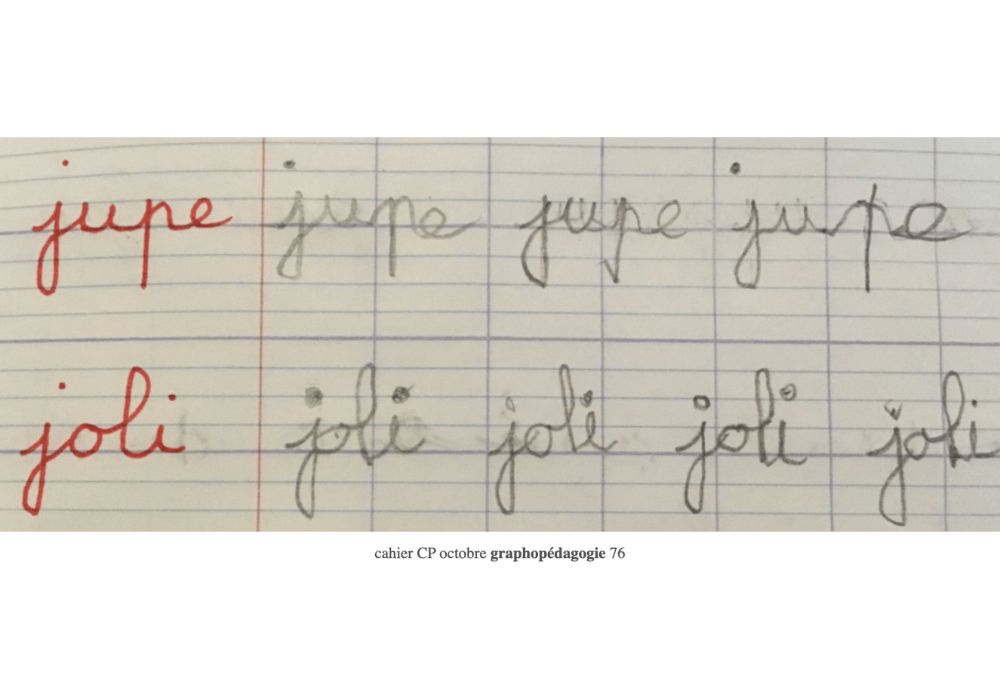 jupe jupe jupe jupe
joli joli joli joli joli
cahier CP octobre graphopédagogie 76